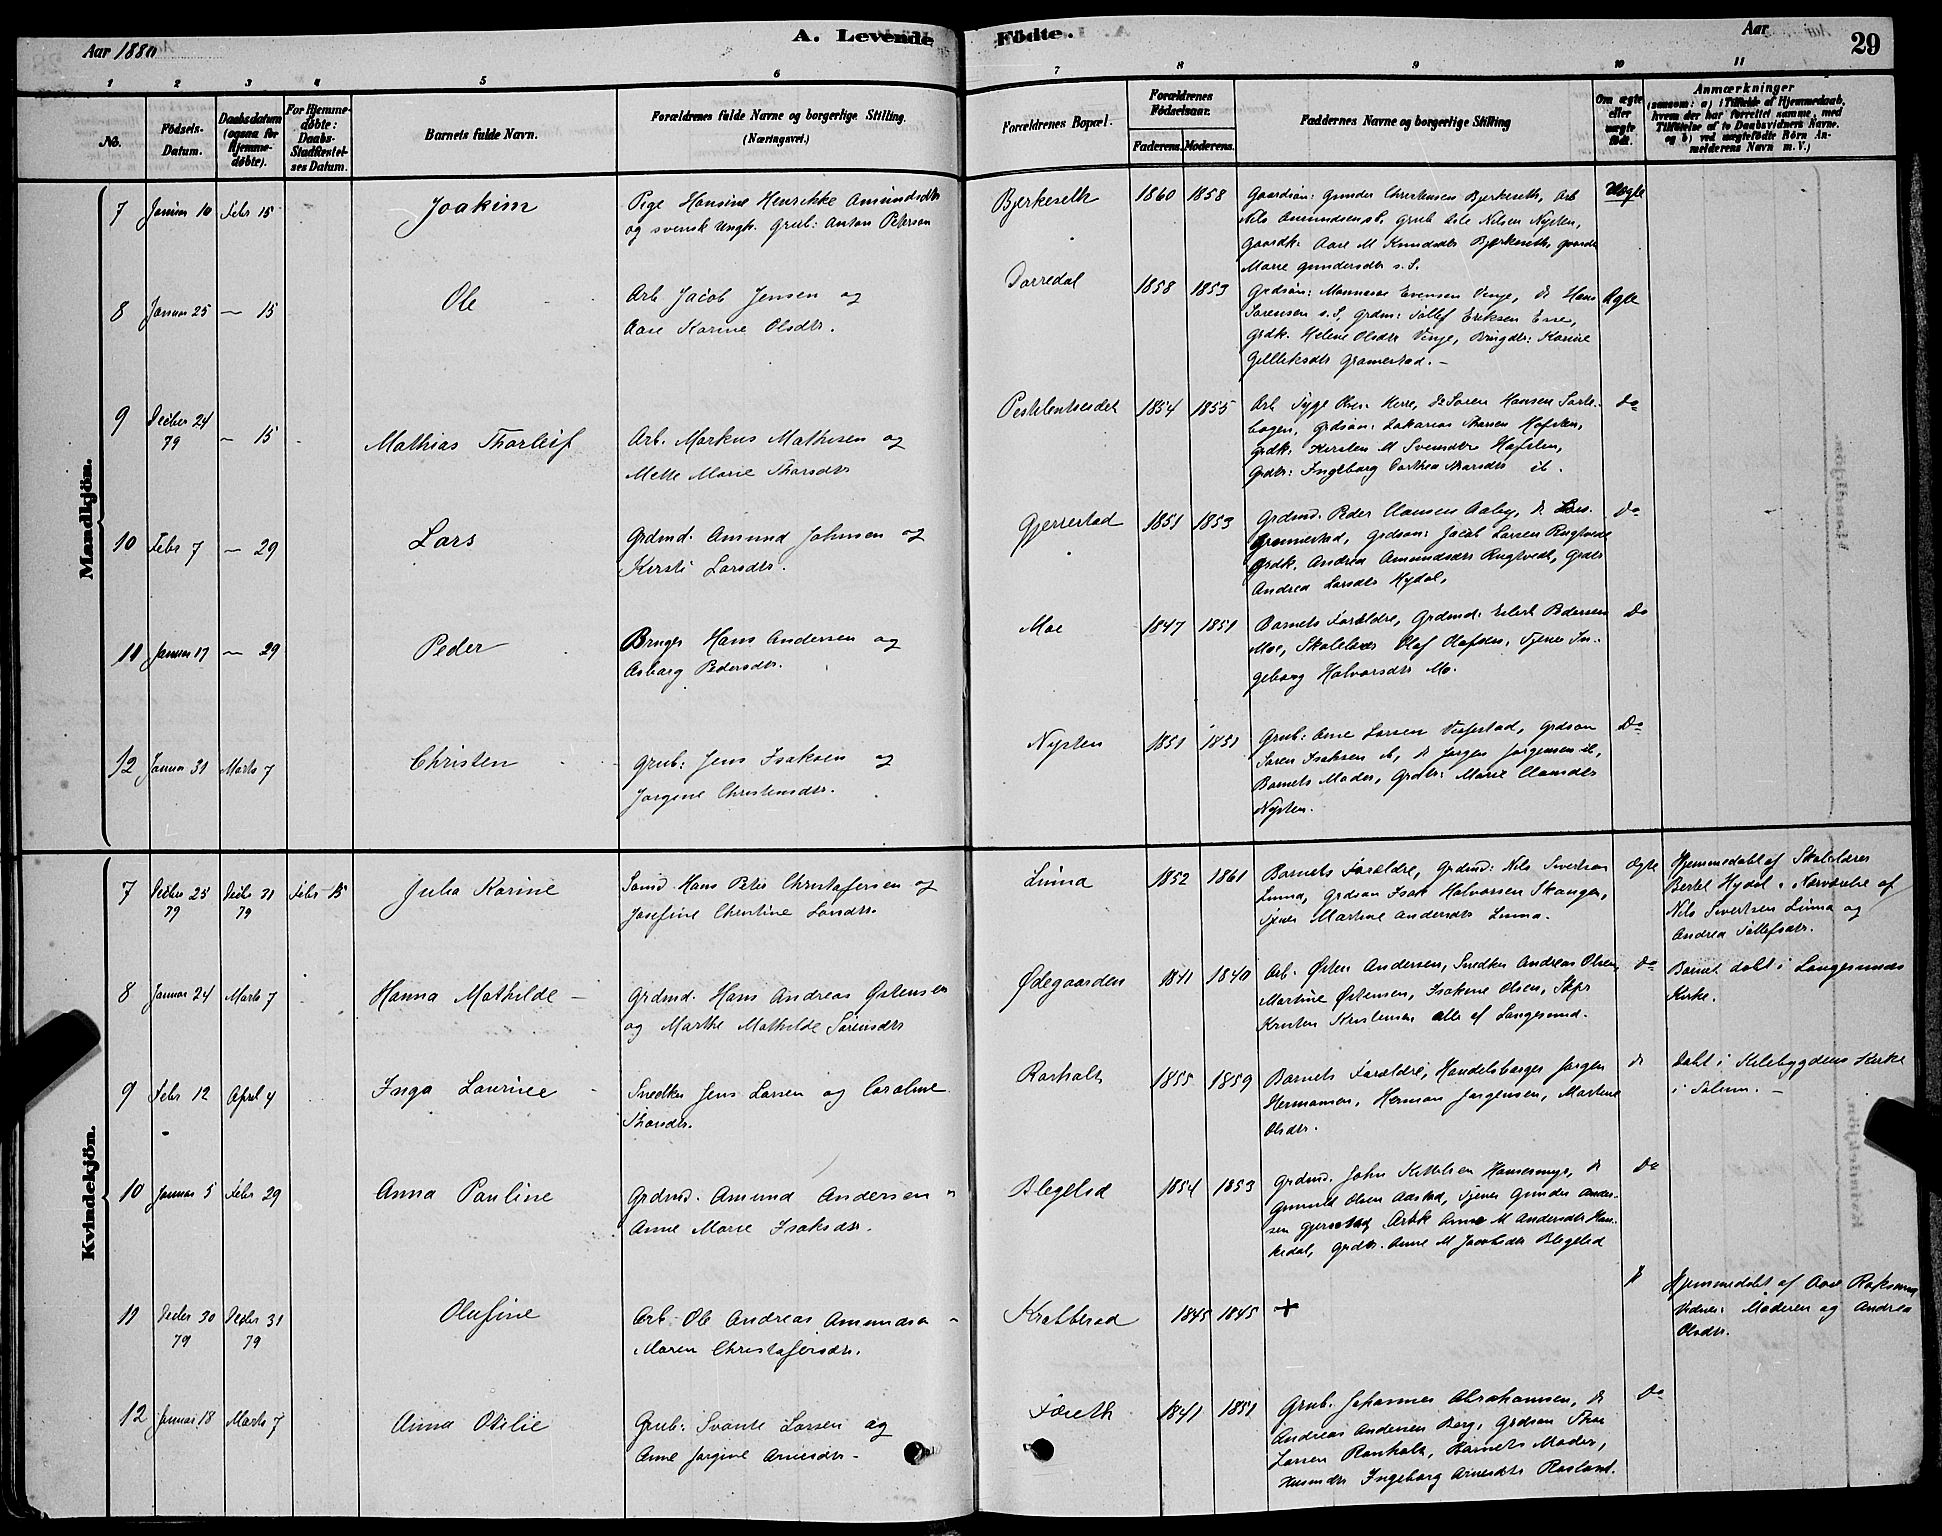 Aar 1880
A. Levende Födte.
Aar
29
1 2 3 4 5 6 7 8 9 10 11
No.
Födsels-Datum.
Daabsdatum (ogsaa for Hjemme-döbte).
For Hjemme-döbte: Daabs-Stadfæstel-ses Datum.
Barnets fulde Navn.
Forældrenes fulde Navne og borgerlige Stilling. (Næringsvei.)
Forældrenes Bopæl.
Forældrenes Födselsaar.
Faderens. Moderens.
Faddernes Navne og borgerlige Stilling
Om ægte eller uægte födt.
Anmærkninger
(saasom: a) i Tilfælde af Hjemmedaab, hvem der har forrettet samme, med Tilføielse af to Daabsvidners Navne, og b) ved uægtefödte Börn An-melderens Navn m. V.)
Mandkjön.
7 Januar 10 Febr 15 Joakim
Pige Hansine Henrikke Amundsdtr
og svensk Ungk. Grub: Anton Peterson
Bjerkeseth 1860 1858
Gaardsøn: Gunder Christensen Bjerkeseth, Arb
Nils Amundsen st, Grub Nilsen Nysten,
Gaardk. Aase M Knudsdtr Bjerkeseth, Gaardd
Marie Gundersdtr s. S.
Uægte
8 Januar 25 — 15 Ole
Arb Jacob Jensen og
Aase Karine Olsdtr.
Dorredal 1858 1853
Grdsøn: Evensen Venje, do Hans
Sørensen s. S, Grdm: Tollef Eriksen
Grdk. Helene Olsdtr Venje, Karine
Gramestad.—
Ægte
9 Decber 24 79 — 15 Mathias Thorleif
Arb. Markus Mathisen og
Mette Marie Thorsdtr
1854 1855
Arb Herre, do Søren Hansen
Grdsøn: Zakarias Hafsten,
Grdk. Kirsten M Svendsdtr Hafsten,
Grdtr: Ingeborg Dorthea ib.
do
10 Febr 7 — 29 Lars
Grdmd. Amund Johnsen og
Kirsti Larsdtr.
Gjerrestad 1851 1853
Grdmd. Peder Clausen Aaby, do Lars
Gramestad, Grdsøn: Jacob Larsen Rugtvedt
Grdk. Andrea Amundsdtr Rugtvedt, Grdtr
Andrea Larsdtr Hydal,
do
11 Januar 17 — 29 Peder
Bruger Hans Andersen og
Asborg Pedersdtr.
Moe 1847 1851
Barnets Forældre, Grdmd. Eilert Pedersen
Moe, Skolelærer Olaf Olafsen, Tjener In-
geborg Halvorsdtr Mo.
Do
12 Januar 31 Marts 7 Christen
Grub: Jens Isaksen og
Jørgine Christensdtr.
Nysten 1851 1851
Grub: Arne Larsen Grdsøn
Søren Isaksen ib, do Jørgen Jørgensen ib,
Barnets Moder, Grdtr. Marie Clausdtr
Nysten.
Do
Kvindekjön.
7 Decber 25 79 Decbr 31 79 Febr 15 Julia Karine
Hans Peter Christofersen og
Josefine Christine Larsdtr.
Linna 1852 1861
Barnets Forældre, Grdmd: Nils Sivertsen
Linna, Grdsøn Isak Halvorsen Skanger,
Tjener Martine Andersdtr Linna.
Ægte
Hjemmedøbt af Skolelærer
Bertel Hydal i Nærværelse af
Nils Sivertsen Linna og
Andrea Tollefsdtr.
8 Januar 24 Marts 7 Hanna Mathilde
Grdmd. Hans Andreas Østensen
og Marthe Mathilde Sørensdtr
Ødegaarden 1841 1840
Arb. Østen Andersen, Snedker Andreas Olsen,
Martine Østensen, Isakine Olsen, Skpr
Kristen Kristensen alle af Langesund.
do
Barnet døbt i Langesunds
Kirke.
9 Febr 12 April 4 Inga Laurine
Snedker Jens Larsen og Caroline
Thorsdtr.
Rønholt 1855 1859
Barnets Forældre, Handelsborger Jørgen
Hermansen, Herman Jørgensen, Martine
Olsdtr.
do
Døbt i Kilebygdens Kirke
i Solum.—
10 Januar 5 Febr 29 Anna Pauline
Grdmd. Amund Andersen og
Anne Marie Isaksdtr.
Blegelid 1854 1853
Grdmd. John Kittilsen Hansemyr, do
Gunnuld Olsen Aastad, Tjener Gunder Ander-
sen Gjerrestad, Arbk Anne M Andersdtr Han-
kedal, Grdtr. Anne M Jacobsdtr Blegelid
Do
11 Decber 30 79 Decber 31 79 Olufine
Arb. Ole Andreas Amundsen
Maren Christofersdtr.
Krabberød 1845 1845 +
do
Hjemmedøbt af Aase
Vidner: Moderen og Andrea
Olsdtr.
12 Januar 18 Marts 7 Anna Otilie
Grub: Svante Larsen og
Anne Jørgine Arnesdtr—
1841 1851
Grub. Johannes Abrahamsen, do
Andreas Andersen Berg, Grdsøn Thor
Larsen Rønholt, Barnets Moder,
Ingeborg Arnesdtr Røsland.
Do